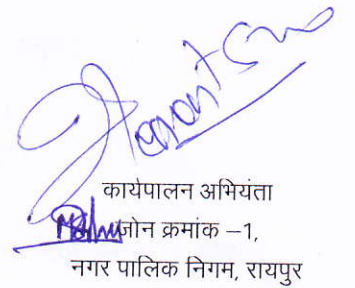 कार्यपालन अभियंता
जोन क्रमांक –1,
नगर पालिक निगम, रायपुर